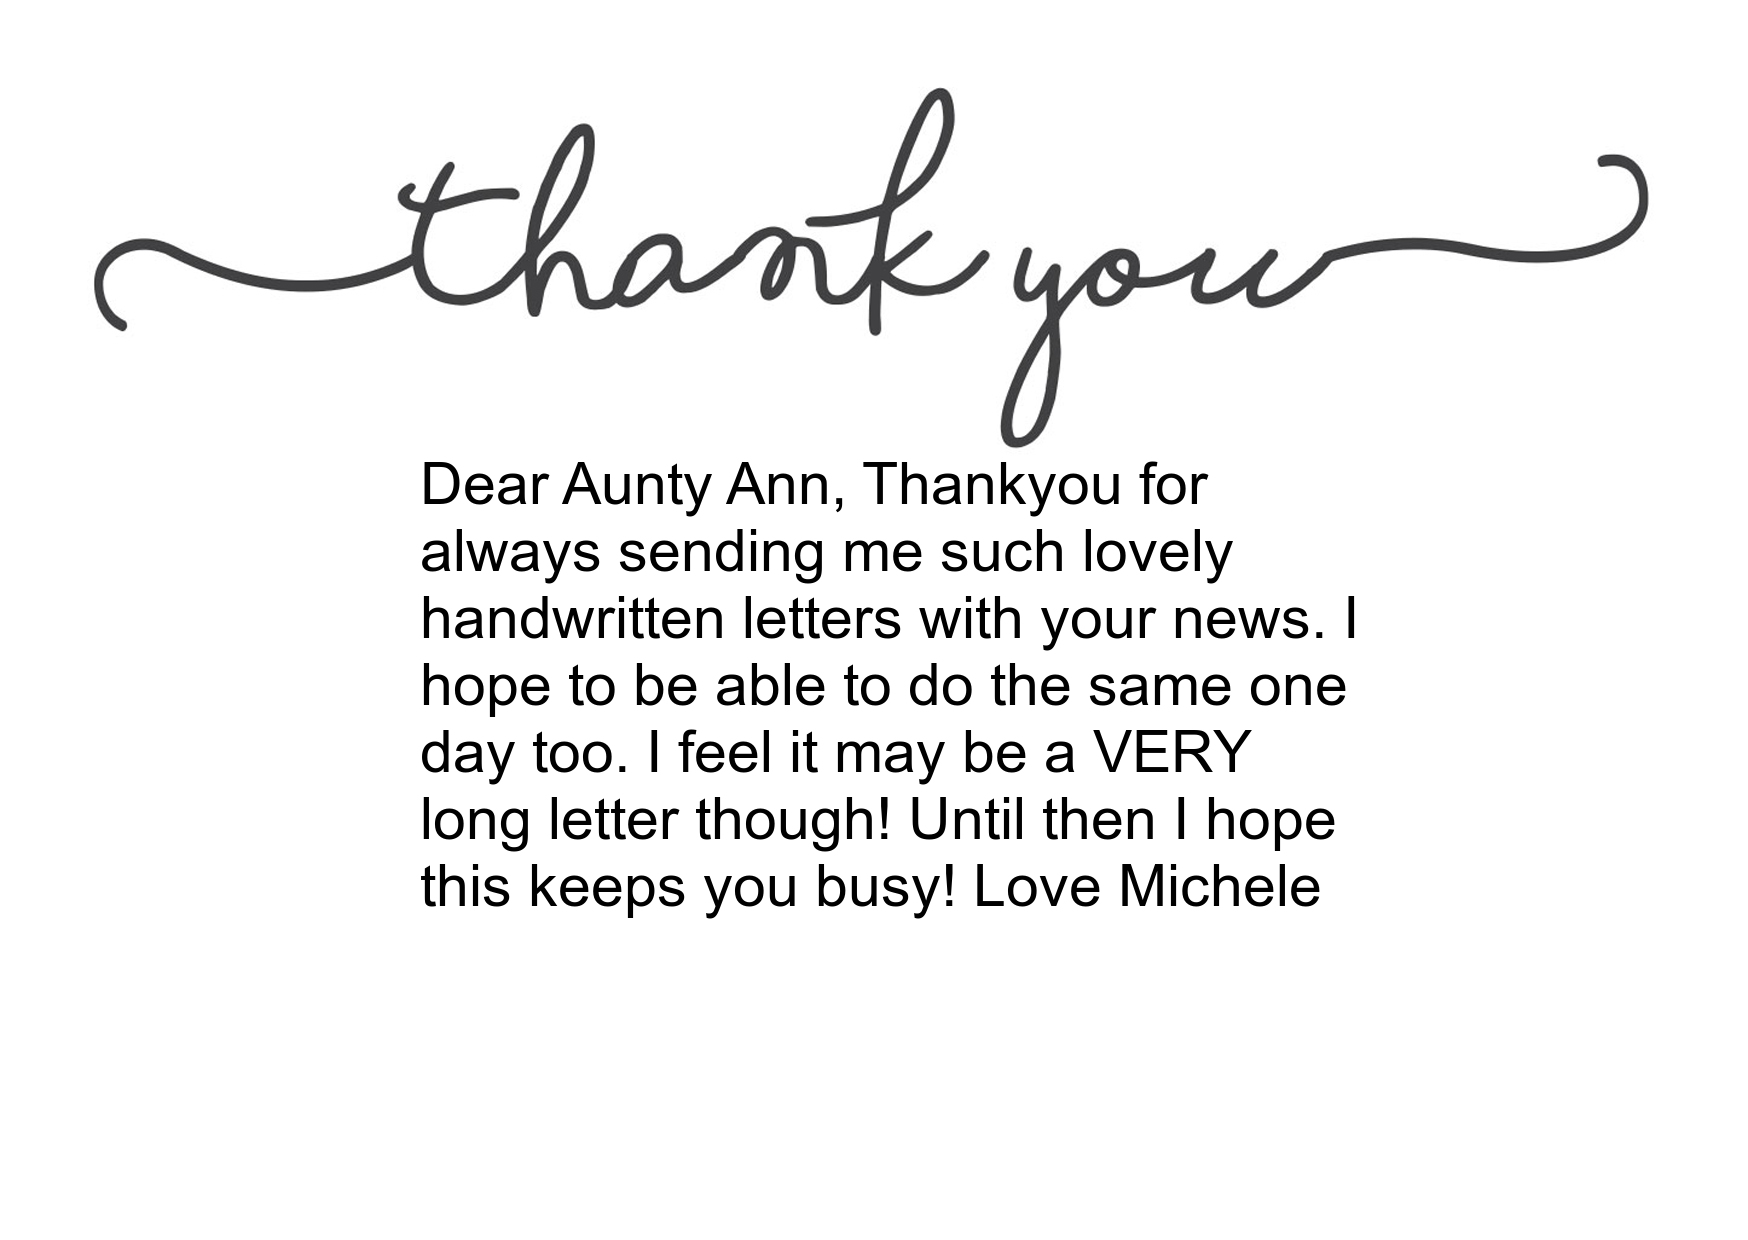 thank you
Dear Aunty Ann, Thankyou for
always sending me such lovely
handwritten letters with your news. I
hope to be able to do the same one
day too. I feel it may be a VERY
long letter though! Until then I hope
this keeps you busy! Love Michele